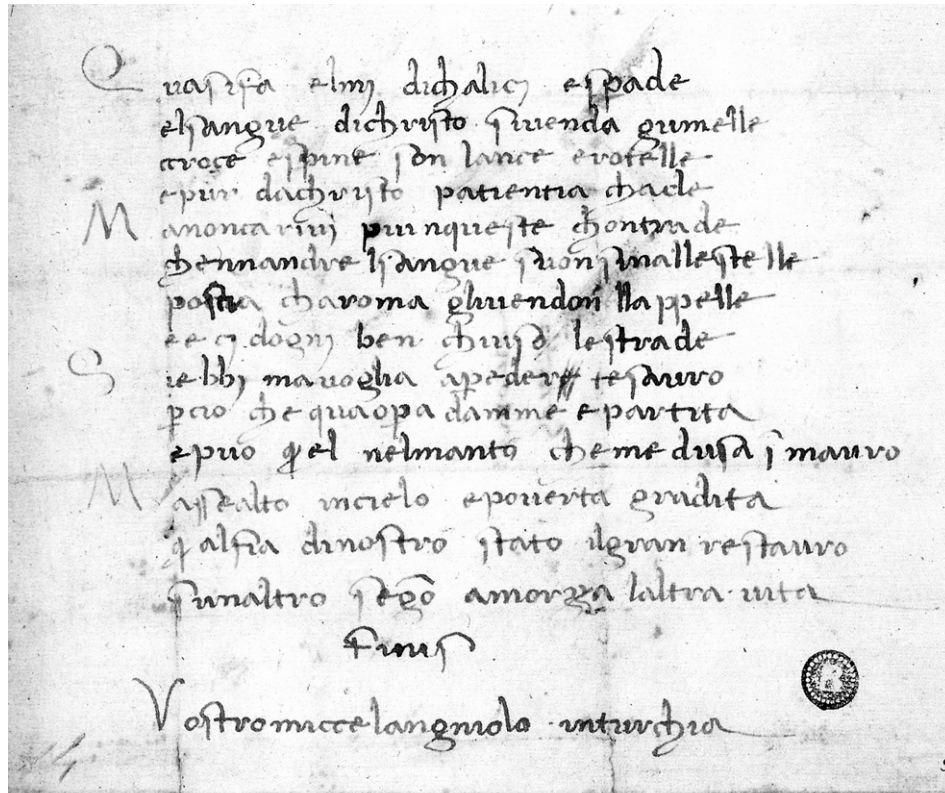 Qua si fa elmi di chalici e spade
el sangue di christo si vend a giumelle
croce e spine son lance e rotelle
e pur da christo patientia chade
Ma non ca rivi piu n queste chontrade
che nn andre l sangue suo n sin alle stelle
poscia cha roma gli vendon lla pelle
e e ci d ogni ben chiuso le strade
S i e bbi ma voglia a p eder tesauro
p cio che qua op a da mme e partita
e puo q el nel manto che medusa i mauro
Ma sse alto in cielo e poverta gradita
q al fia di nostro stato il gran restauro
s un altro segō amorza l altra vita
Finis
Vostro miccelangniolo in turchia